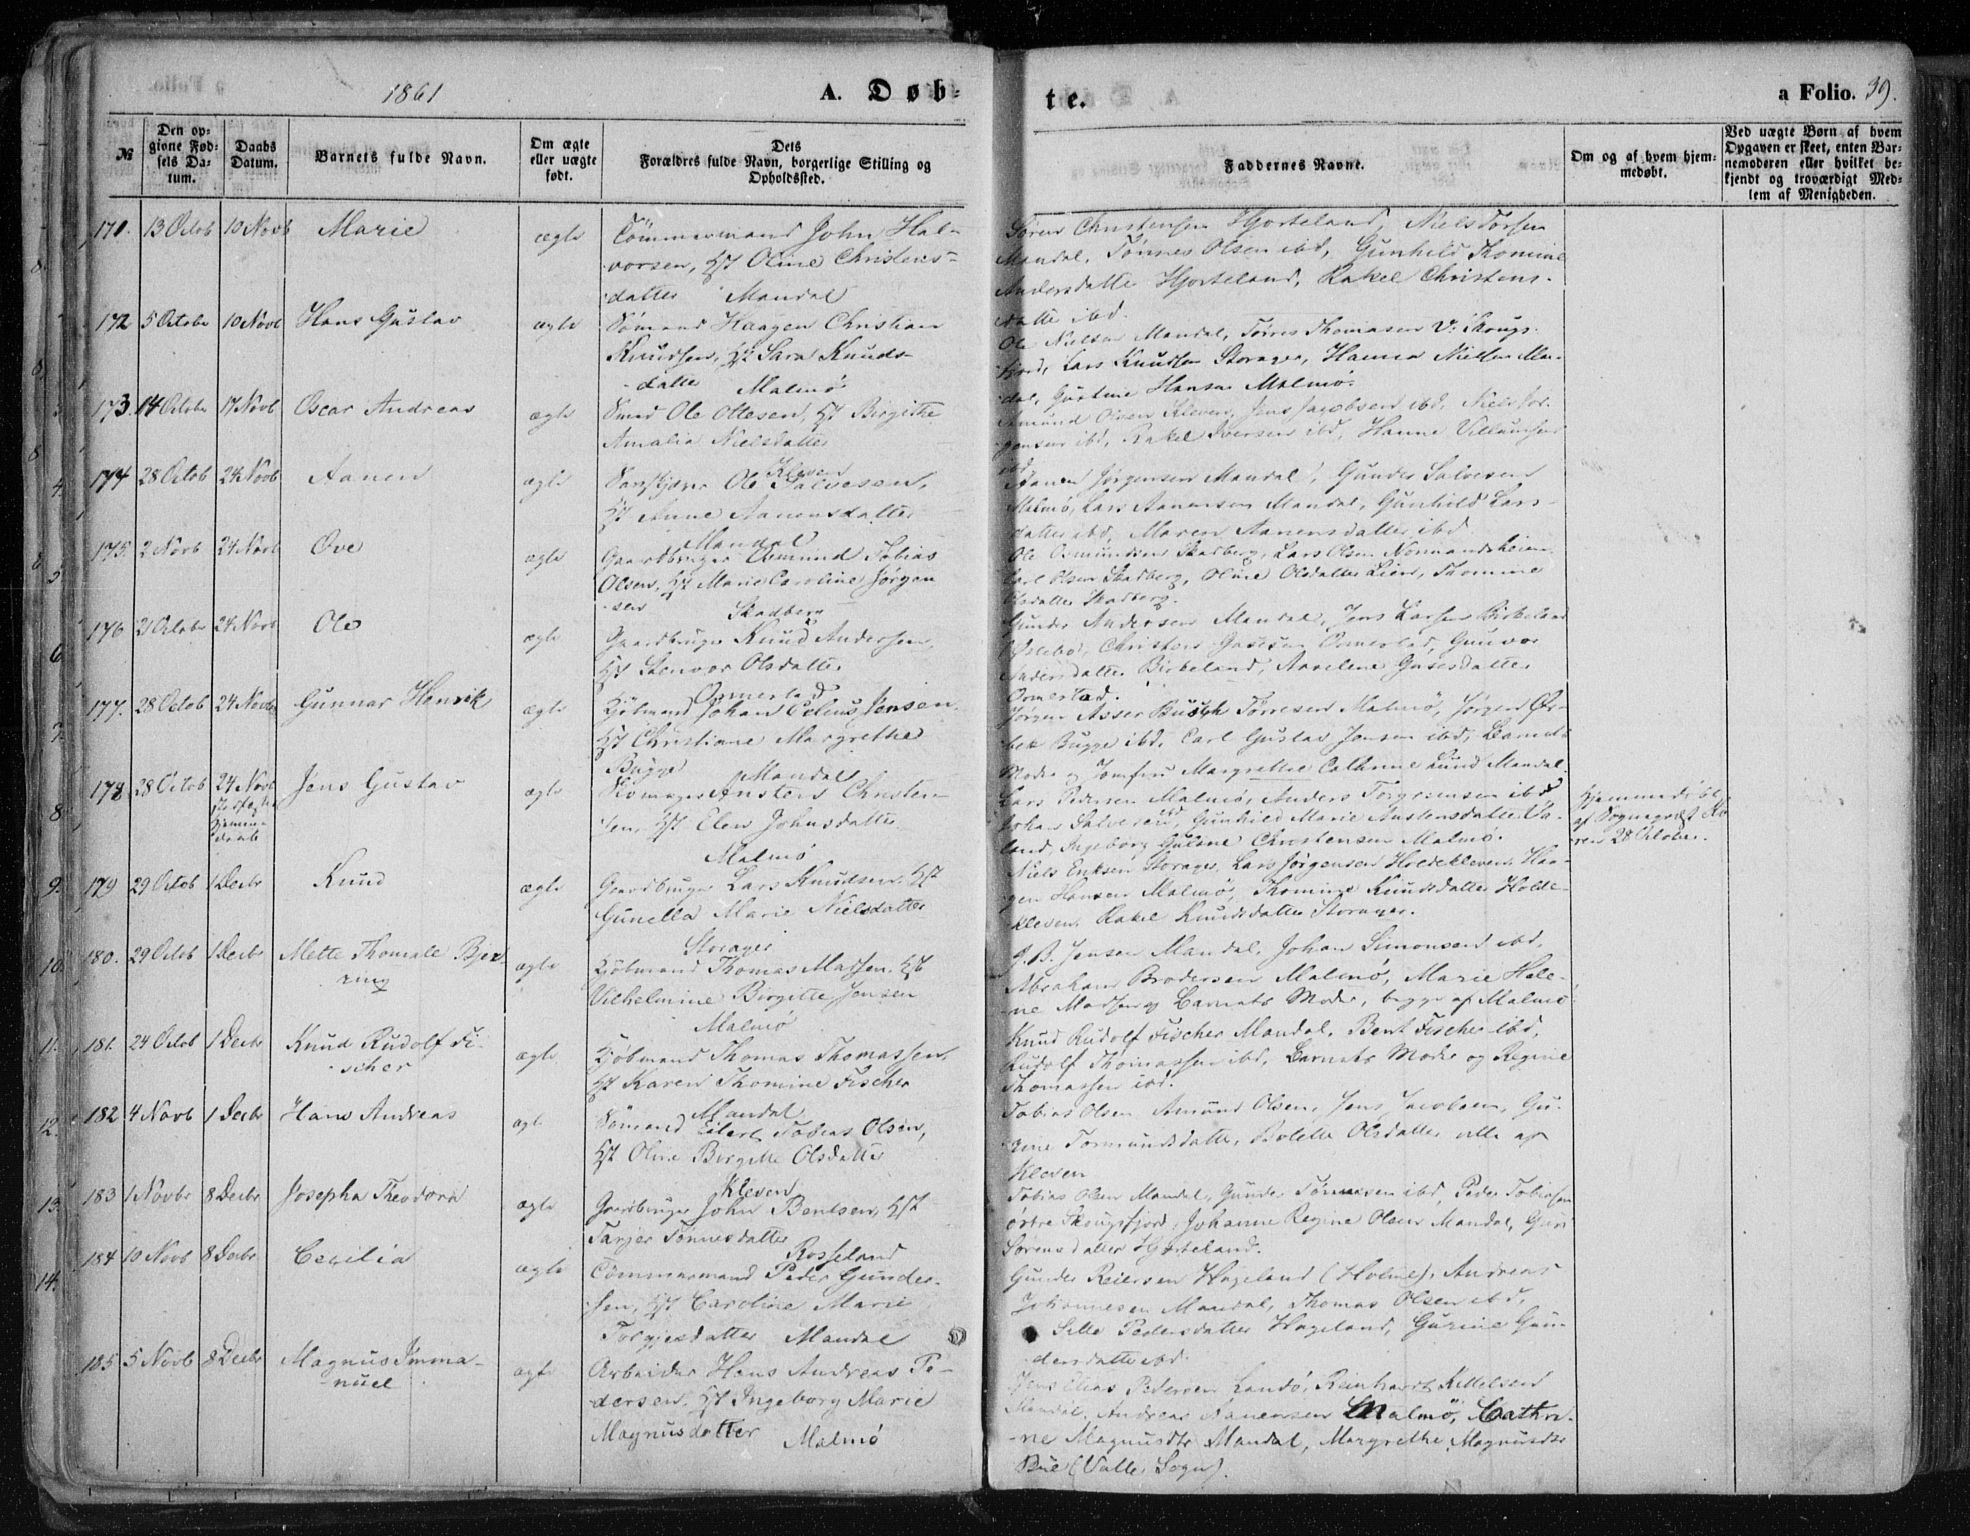 1861
A. Døb-
te.
a Folio. 39.
№
Den op-
givne Fød-
sels Da-
tum.
Daabs
Datum.
Barnets fulde Navn.
Om ægte
eller uægte
født.
Dets
Forældres fulde Navn, borgerlige Stilling og
Opholdssted.
Faddernes Navne.
Om og af hvem hjem-
medøbt.
Ved uægte Børn af hvem
Opgaven er skeet, enten Bar-
nemoderen eller hvilket be-
kjendt og troværdigt Med-
lem af Menigheden.
171. 13 Octob 10 Novb Marie ægte Tömmermand John Hal-
vorsen, Hst Oline Christens-
datter Mandal
Søren Christensen Hjorteland, Niels Torsen
Mandal, Tønnes Olsen ibd, Gunhild Thomine
Andersdatte Hjorteland, Rakel Christens-
datte ibd.
172 5 Octobr 10 Novb Hans Gustav ægte Sömand Haagen Christian
Knudsen, Hst Sara Knuds-
datte Malmö
Ole Nielsen Mandal, Tørres Thomasen V: Skougs-
fjord, Lars Knudsen Storager, Hanna Nielsen Man-
dal, Gustine Hansen Malmö.
173. 14 Octobr 17 Novb Oscar Andreas ægte Smed Ole Ollesen, Hst Birgithe
Amalia Nielsdatter
Kleven
Amund Olsen Kleven, Jens Jacobsen ibd, Niels Jør-
gensen ibd, Rakel Iversen ibd, Hanne Villumsen
ibd
174 28 Octob 24 Novb Aanen ægte Ole Salvesen,
Hst Anne Aanensdatter
Mandal
Aanen Jørgensen Mandal, Gunder Salvesen
Malmö, Lars Aanensen Mandal, Gunhild Lars-
datter ibd, Maren Aanensdatter ibd.
175. 2 Novb 24 Novb Ove ægte Gaardbruger Osmund Tobias
Olsen, Hst Marie Caroline Jørgen
sen Skadberg
Ole Osmundsen Skadberg, Lars Olsen Normandsheien
Carl Olsen Skadberg, Oline Olsdatter Lien, Thomine
Olsdatter Skadberg.
176 21 Octobr 24 Novb Ole ægte Gaardbruger Knud Andersen,
Hst Stenvor Olsdatter
Ormestad
Gunder Andersen Mandal, Jens Larsen Birkeland
Christen Gusesen Ormestad, Gunvor
Andersdatter Birkeland, Aaselene Gusesdatter
Ormestad.
177. 28 Octob 24 Novb Gunnar Henrik ægte Kjöbmand Johan Jensen
Hst Christiane Margrethe
Bugge Mandal
Jörgen Asser Busch Tørresen Malmö, Jørgen
Bugge ibd, Carl Gustav Jensen ibd, Barnets
Moder og Jomfru Margrethe Cathrine Lund Mandal.
178 28 Octob 24 Novb
Jens Gustav ægte Skomager Ansten Christen-
sen, Hst Elen Johnsdatter
Malmö
Lars Pedersen Malmö, Anders Torgersensen ibd
Johan Salvesen ibd, Gunhild Marie Austensdatter
land, Ingeborg Christensen Malmö.
Hjemmedöbt
af Sogneprest
28 October.
179 29 Octob 1 Decbr Knud ægte Gaardbruger Lars Knudsen, Hst
Gunella Marie Nielsdatter
Storager
Niels Eriksen Storager, Lars Jørgensen Holdekleven, Haa-
gen Hansen Malmö, Thomine Knudsdatter Holde-
kleven, Rakel Knudsdatter Storager.
180. 29 Octob 1 Decbr Mette Thomale Bjer-
ring
ægte Kjöbmand Thomas Massen, Hst
Vilhelmine Birgitte Jensen
Malmö
J. B. Jensen Mandal, Johan Simonsen ibd,
Abraham Brodersen Malmö, Marie Hele-
ne Madsen og Barnets Moder, begge af Malmö
181. 24 Octob 1 Decbr Knud Rudolf Fi-
scher
ægte Kjöbmand Thomas Thomassen,
Hst Karen Thomine Fischer
Mandal
Knud Rudolf Fischer Mandal, Bent Fischer ibd,
Rudolf Thomassen ibd, Barnets Moder og Regine
Thomassen ibd.
182 4 Novb 1 Decbr Hans Andreas ægte Sömand Eilert Tobias Olsen,
Hst Oline Birgitte Olsdatter
Kleven
Tobias Olsen Amund Olsen, Jens Jacobsen, Gu-
rine Tormundsdatter, Bolette Olsdatter, alle af
Kleven
183 1 Novbr 8 Decbr Josepha Theodora ægte Gaardbruger John Bentsen, Hst
Tarjer Tönnesdatter
Rosseland
Tobias Olsen Mandal, Gunder Tönnesen ibd, Peder Tobiassen
østre Skougsfjord, Johanne Regine Olsen Mandal, Guri
Sørensdatter Hjorteland.
184 10 Novb 8 Decbr Cecilia ægte Tömmermand Peder Gunder-
sen, Hst Caroline Marie
Torgjesdatter Mandal
Gunder Reiersen Hageland (Holme), Andreas
Johannesen Mandal, Thomas Olsen ibd,
Sille Pedersdatter Hageland, Gurine Gun-
dersdatter ibd.
185 5 Novb 8 Decbr Magnus Imma-
nuel
ægte Arbeider Hans Andreas Pe-
dersen, Hst Ingeborg Marie
Magnusdatter Malmö
Jens Elias Pedersen Landö, Reinhardt Kittelsen
Mandal, Andreas Aanensen Malmö, Cathri-
ne Magnusdtr Mandal, Margrethe Magnusdtr
Bue (Valle Sogn).